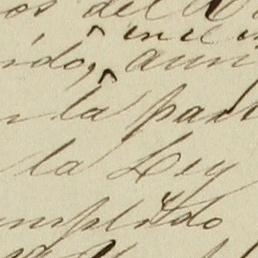 os del
en el
ido, aun
la part
la Ley
umplido